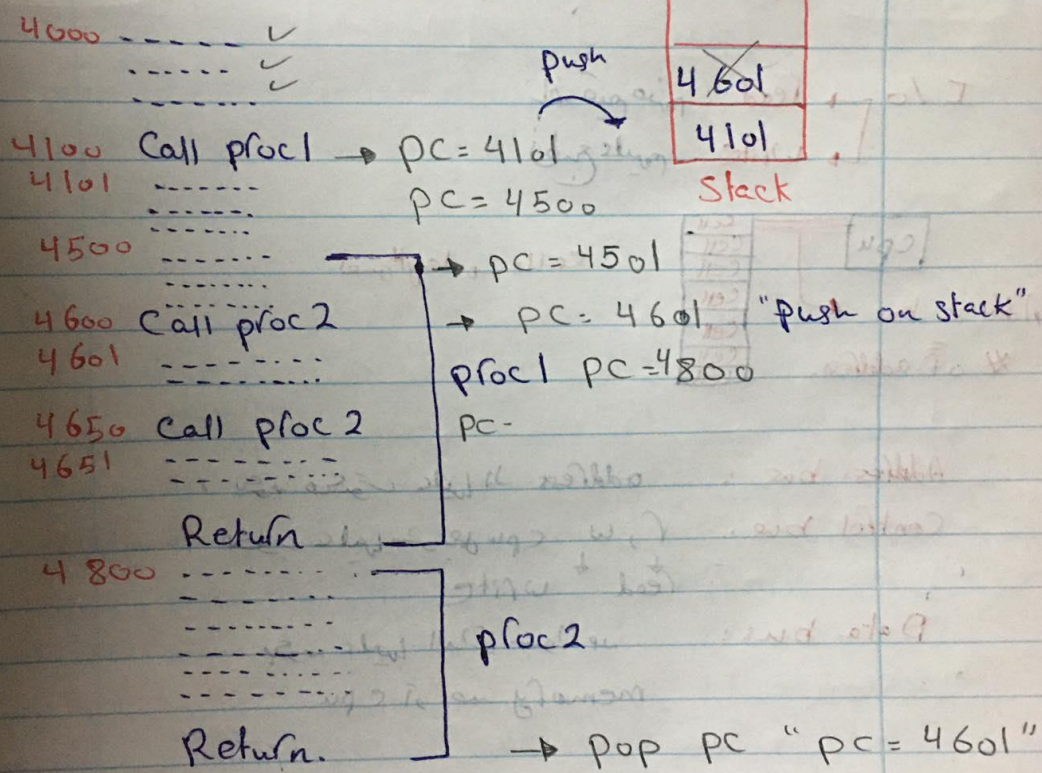 4000 ------ ✓
------ ✓
------ ✓
push
4601
4101
Stack
4100 Call proc1 → pc = 4101
4101 -------
pc = 4500
4500 -------
→ pc = 4501
4600 Call proc2 → pc = 4601 "push on stack"
4601 --------
proc1 pc = 4800
4650 Call proc2 pc -
4651 --------
Return
4800 --------
proc2
Return. → pop pc "pc = 4601"